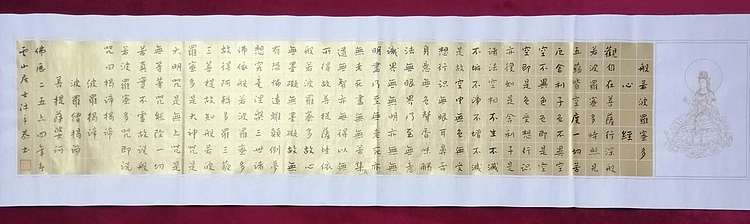 般若波羅蜜多
心經
觀自在菩薩行深般
若波羅蜜多時照見
五蘊皆空度一切苦
厄舍利子色不異空
空不異色色即是空
空即是色受想行識
亦復如是舍利子是
諸法空相不生不滅
不垢不淨不增不減
是故空中無色無受
想行識無眼耳鼻舌
身意無色聲香味觸
法無眼界乃至無意
識界無無明亦無無
明盡乃至無老死亦
無老死盡無苦集滅
道無智亦無得以無
所得故菩提薩埵依
般若波羅蜜多故心
無罣礙無罣礙故無
有恐怖遠離顛倒夢
想究竟涅槃三世諸
佛依般若波羅蜜多
故得阿耨多羅三藐
三菩提故知般若波
羅蜜多是大神咒是
大明咒是無上咒是
無等等咒能除一切
苦真實不虛故說般
若波羅蜜多咒即說
咒曰揭諦揭諦
波羅揭諦
波羅僧揭諦
菩提薩婆訶
佛歷二五
山居士沐手恭書